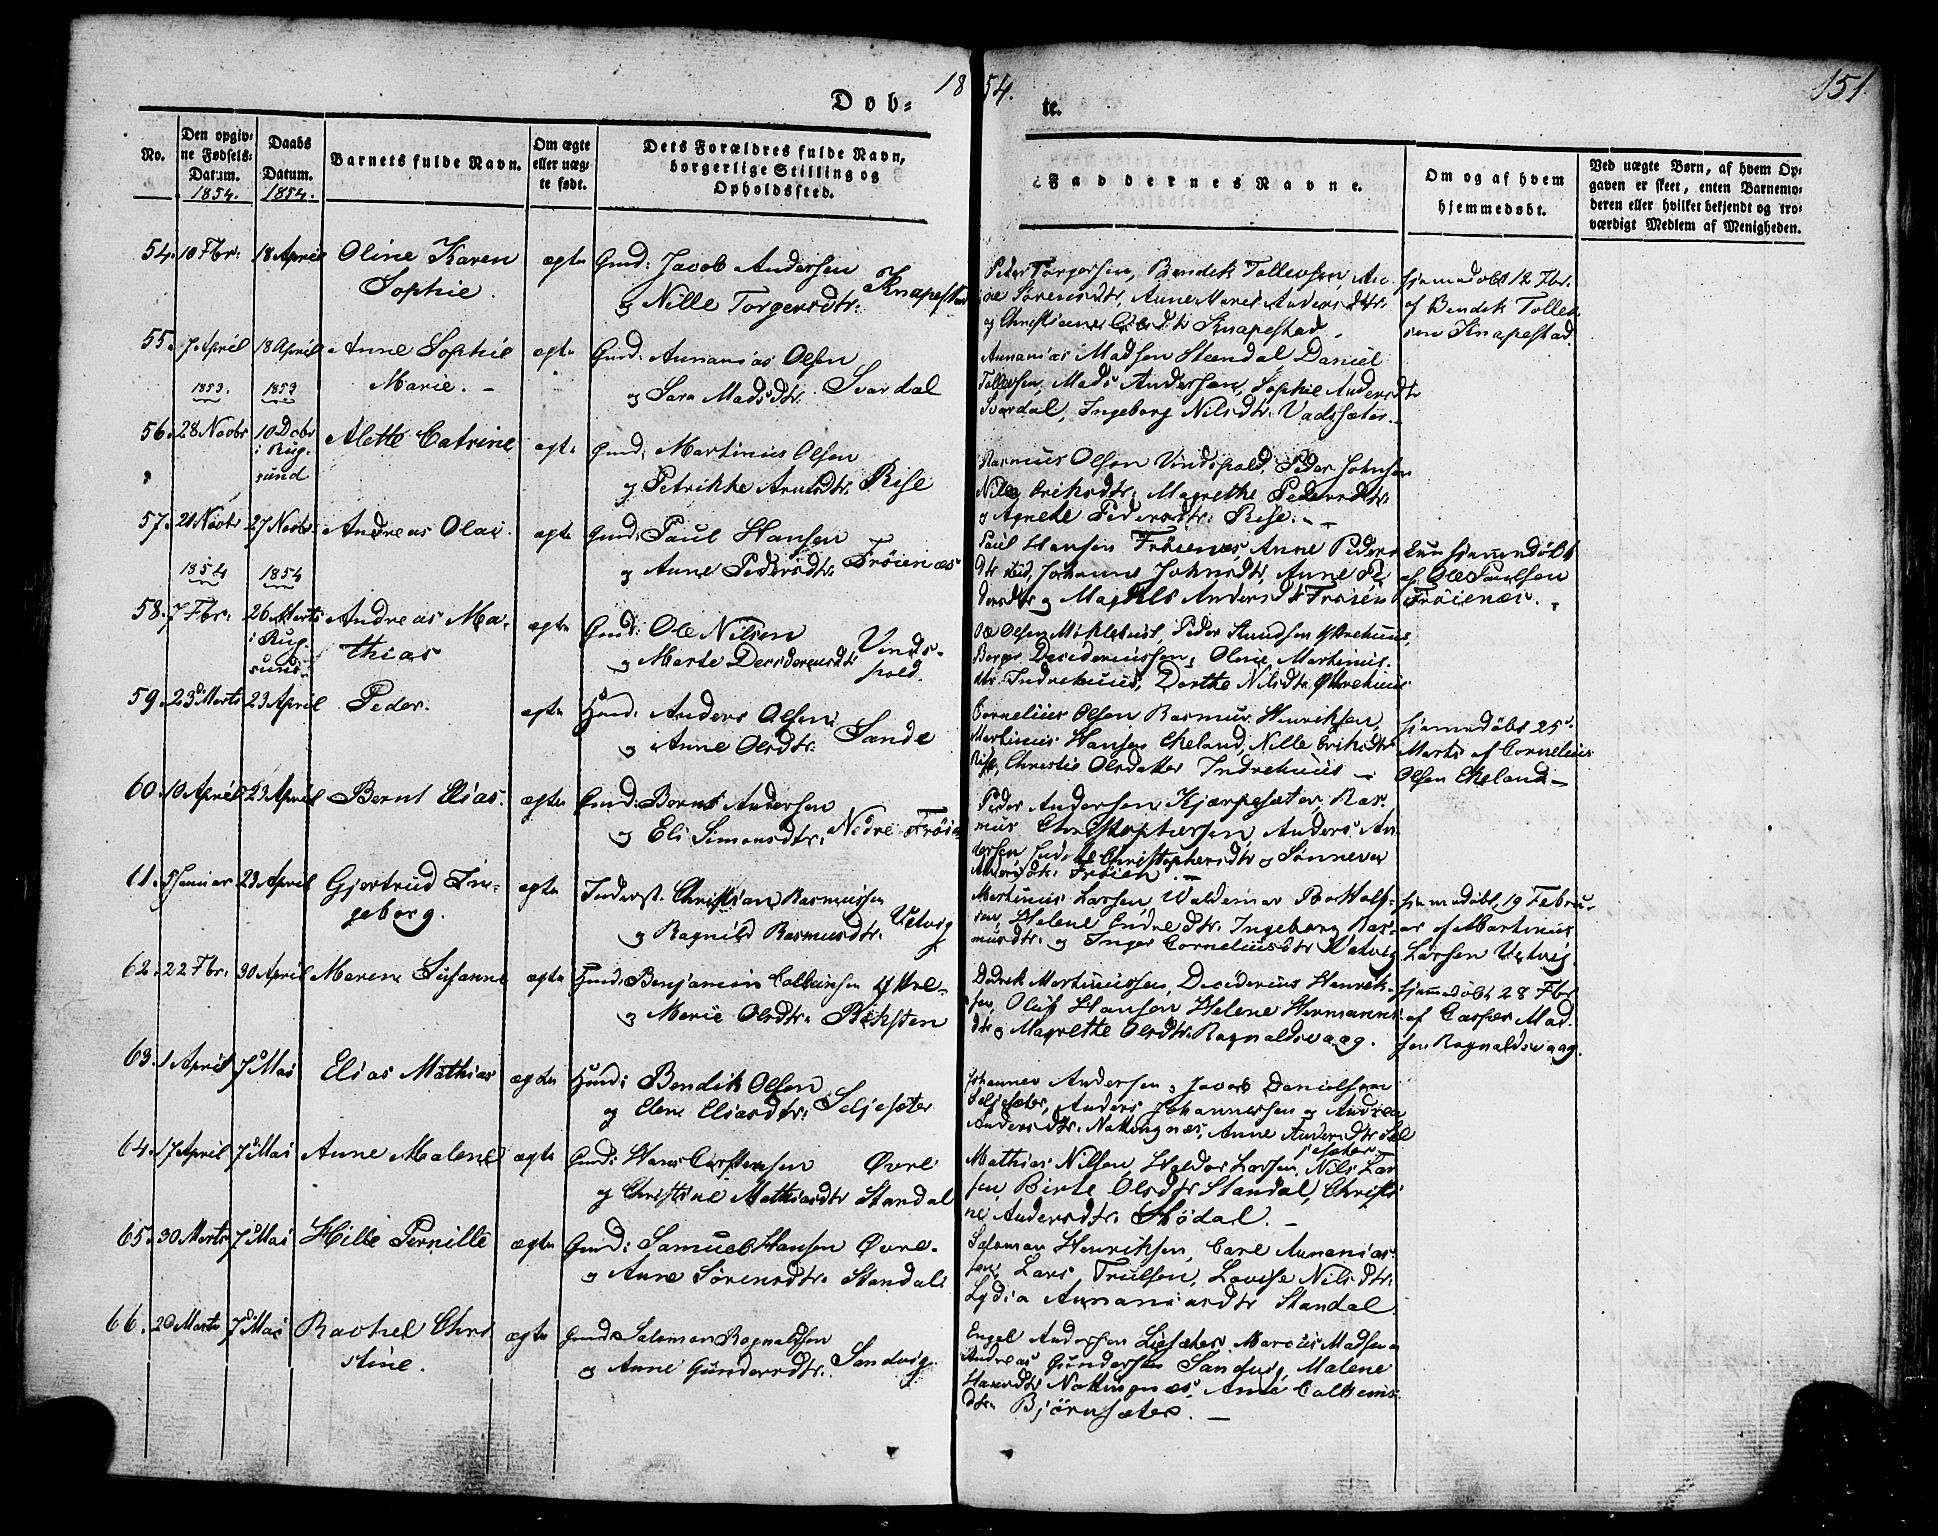 1854.
151
Døb-
te.
No.
Den opgiv-
ne Fødsels-
Datum.
1854.
Daabs
Datum.
1854.
Barnets fulde Navn.
Om ægte
eller uæg-
te født.
Dets Forældres fulde Navn,
borgerlige Stilling og
Opholdssted.
Faddernes Navne.
Om og af hvem
hjemmedøbt.
Ved uægte Børn, af hvem Op-
gaven er skeet, enten Barnemo-
deren eller hvilket bekjendt og tro-
værdigt Medlem af Menigheden.
54. 10 Fbr: 18 April Oline Karen
Sophie.
ægte Gmd: Jacob Andersen
og Nille Torgersdtr. Knapestad
Peder Torgersen, Bendik Tollevsen, An-
ne Sørensdtr, Anne Marie Andersdtr.
og Christiane Olsdtr Knapestad.
hjemmedøbt 12 Fbr.
af Bendik Tollev-
sen Knapestad.
55. 7 April 18 April Anne Sophie
Marie. -
ægte Gmd: Annanias Olsen
og Sara Madsdtr. Svardal
Annanias Madsen Standal, Daniel
Tollevsen, Mads Andersen, Sophie Andersdtr
Svardal, Ingeborg Nilsdtr. Vadsæter.
1853. 1853
56. 28 Novbr 10 Dcbr
i Rug-
sund
Alette Catrine
ægte Gmd: Martinius Olsen
og Petrikke Arnesdtr. Rise
Rasmus Olsen Vindspold, Peder Johnsen
Nille Eriksdtr. Magrethe Pedersdtr.
og Agnete Pedersdtr. Rise. -
57. 21 Novbr 27 Novbr Andreas Olai
ægte Gmd: Paul Hansen
og Anne Pedersdtr. Frøienæs
Paul Hansen Frøienæs, Anne Peders
dtr ibid, Johanne Johnsdtr, Anne Pe
dersdtr og Magdels Andersdtr Frøien
hjemmedøbt
af Ole Paulsen
Frøienæs.
1854 1854
58. 7 Fbr. 26 Marts
i Rug-
sund
Andreas Ma-
thias
ægte Gmd: Ole Nilsen
og Marte Desideriusdtr Vinds-
pold.
Ole Olsen Myklebust, Peder Knudsen Yttrehuus,
Desideriussen, Oline Martinius-
dtr. Indrehuus, Dorthe Nilsdtr. Yttrehuus
59. 23 Marts 23 April Peder.
ægte Huusmd: Anders Olsen
og Anne Olsdtr. Sande
Cornelius Olsen, Rasmus Henriksen,
Martinus Hansen Ekeland, Nille Eriksdtr
Rise, Christie Olsdatter Indrehuus -
hjemmedøbt 25de
Marts af Cornelius
Olsen Ekeland -
60. 10 April 23 April Bernt Elias.
ægte Gmd: Bernt Andersen
og Eli Simonsdtr. Nedre Frøien
Peder Andersen Kjærpesæter, Ras-
mus Christophersen, Anders An-
dersen, Christophersdtr og Sønneva
Andersdtr. Frøien. -
61. 5 Januar 23 April Gjertrud In-
geborg.
ægte Inderst. Christian Rasmussen
og Ragnild Rasmusdtr. Vetvig
Martinius Larsen, Waldemar Botholf-
sen, Helene Endresdtr. Ingeborg Ras-
musdtr. og Inger Corneliusdtr. Vetvig
hjemmedøbt 19 Febru-
ar af Martinius
Larsen Vetvig.
62. 22 Fbr. 30 April Maren Susanne
ægte Gmd: Benjamin Callumsen Yttre-
og Marie Olsdtr. Riksten
Didrik Martinussen, Desiderius Henrik-
sen, Oluf Hansen, Helene Hermanns
dtr og Magrethe Olsdtr. Ragnaldsvaag.
hjemmedøbt 28 Fbr
af Casper Mad-
sen Ragnaldsvaag.
63. 1 April 7de Mai Elias Mathias
ægte Gmd: Bendik Olsen
og Elen Eliasdtr. Seljesæter
Johannes Andersen, Jacob Danielsen
Seljesæter, Anders Johannessen og Andrea
Andersdtr. Nøttingnæs, Anne Andersdtr Sel
jesæter
64. 17 April 7de Mai Anne Malene
ægte Gmd: Hans Carstensen Øvre
og Christine Mathiasdtr Standal
Mathias Nilsen, Haldor Larsen, Nils Lar
sen, Birte Olsdtr Standal, Christi
ne Andersdtr. Hødal. -
65. 30 Marts 7de Mai Hille Pernille
ægte Gmd: Samuel Hansen Øvre-
og Anne Sørensdtr. Standal
Salomon Henriksen, Carl Annanias-
sen, Lars Trulsen, Lovise Nilsdtr.
Lydia Annaniasdtr Standal.
66. 20 Marts 7de Mai Rachel Chri
stine.
ægte Gmd: Salomon Ragnaldsen
og Anne Gundersdtr. Sandvig
Engel Andersen Liesæter, Marcus Madsen
Andreas Gundersen Sandvig, Malene
Hansdtr. Nøttingnæs, Anne Callums
dtr Bjørnsæter. -